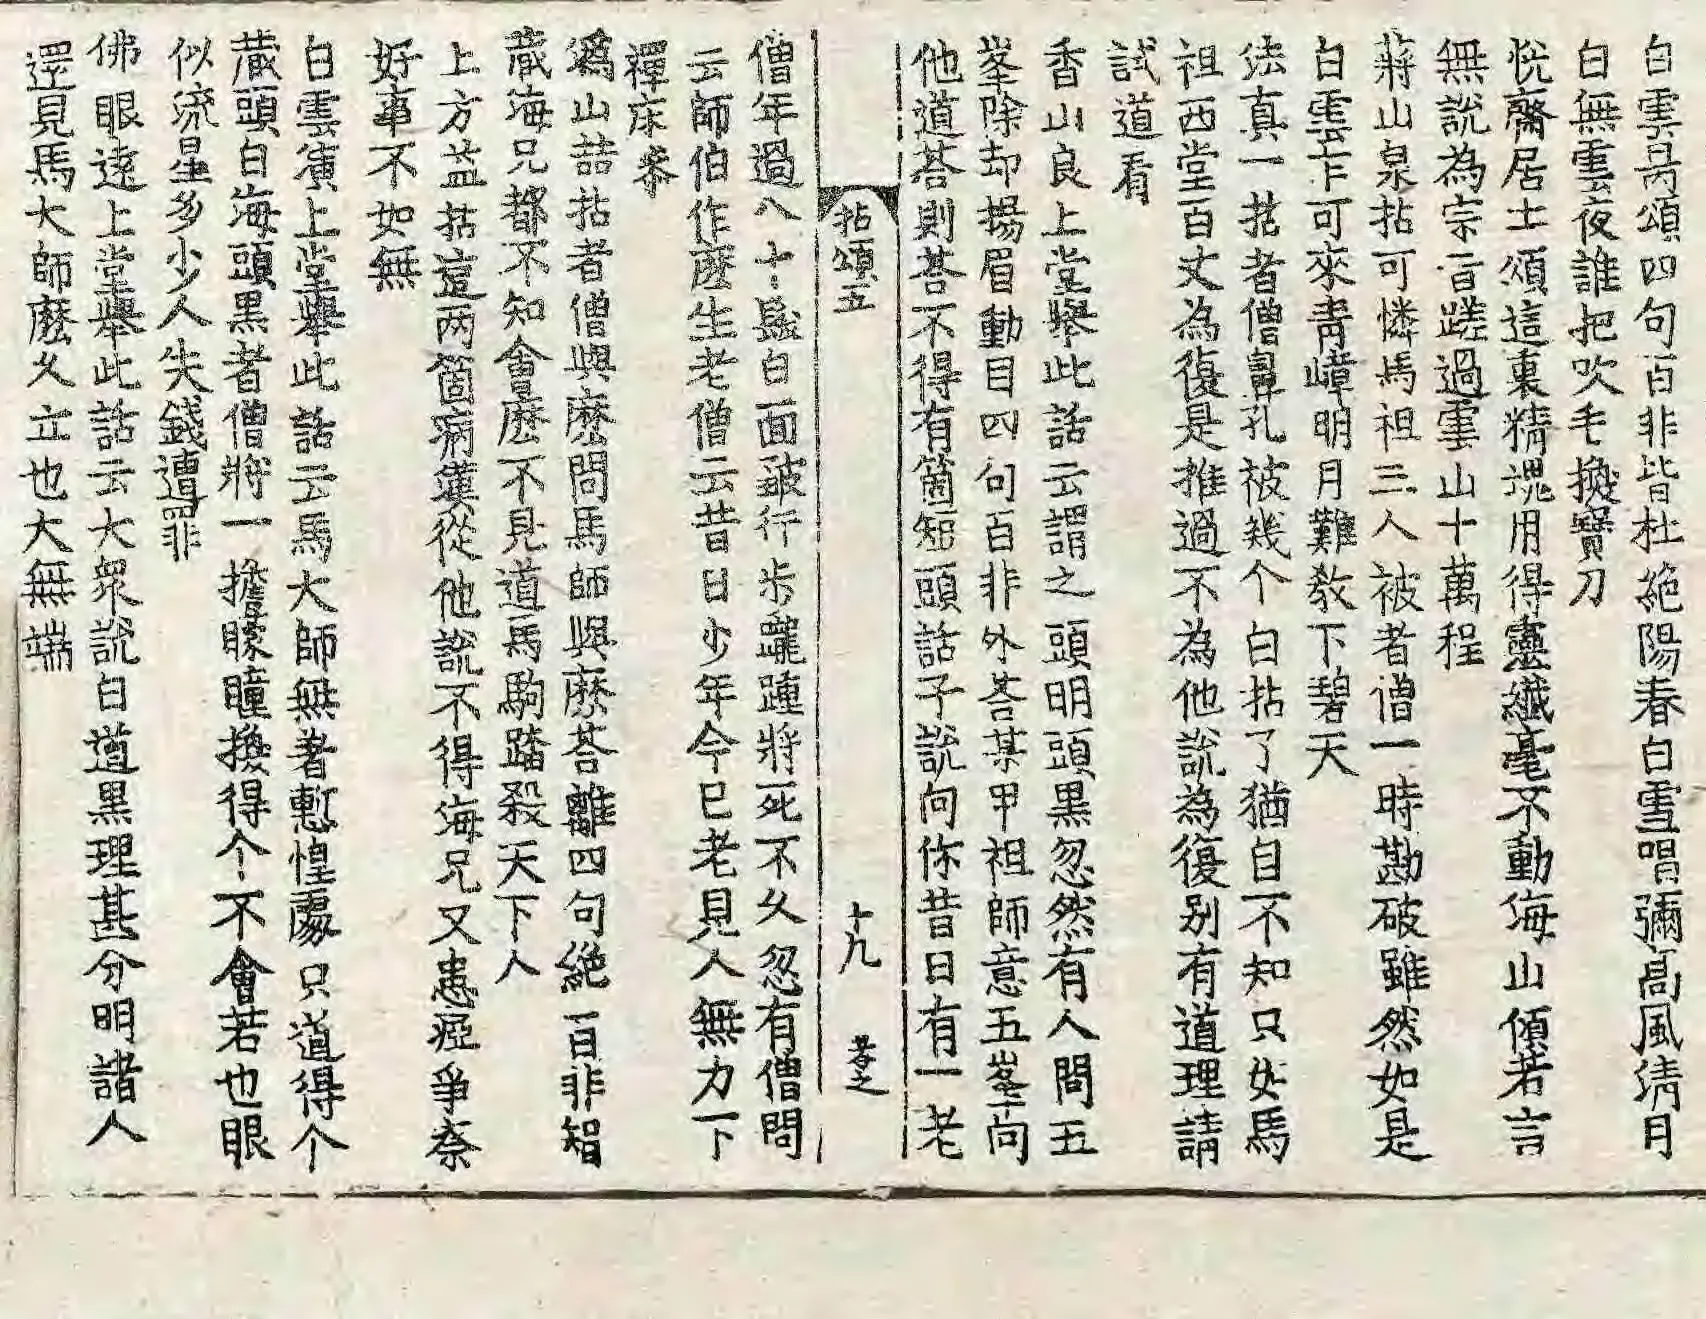 白雲昺頌四句百非皆杜絶陽春白雪唱彌高風淸月
白無雲夜誰把吹毛換寶刀
恱齋居士頌這裏精魂用得靈纖毫不動海山傾若言
無說為宗旨蹉過雲山十萬程
蔣山泉拈可憐馬祖三人被者僧一時勘破雖然如是
白雲乍可來靑嶂明月難敎下碧天
法真一拈者僧鼻孔被幾个白拈了猶自不知只如馬
祖西堂百丈為復是推過不為他說為復別有道理請
試道看
香山良上堂擧此話云謂之頭明頭黒忽然有人問五
峯除却揚眉動目四句百非外荅某甲祖師意五峯向
他道荅則荅不得有箇短頭話子說向你昔日有一老
拈頌五
十九
僧年過八十鬚白面皺行步躘踵將死不久忽有僧問
云師伯作麽生老僧云昔日少年今已老見人無力下
禪床叅
溈山喆拈者僧與麽問馬師與麽荅離四句絶百非智
藏海兄都不知會麽不見道馬駒踏殺天下人
上方益拈這兩箇病漢從他說不得海兄又患瘂爭奈
好事不如無
白雲演上堂擧此話云馬大師無著慙惶處只道得个
藏頭白海頭黒者僧將一擔矇瞳換得个不會若也眼
似流星多少人失錢遭罪
佛眼遠上堂擧此話云大衆說白道黒理甚分明諸人
還見馬大師麽久立也大無端